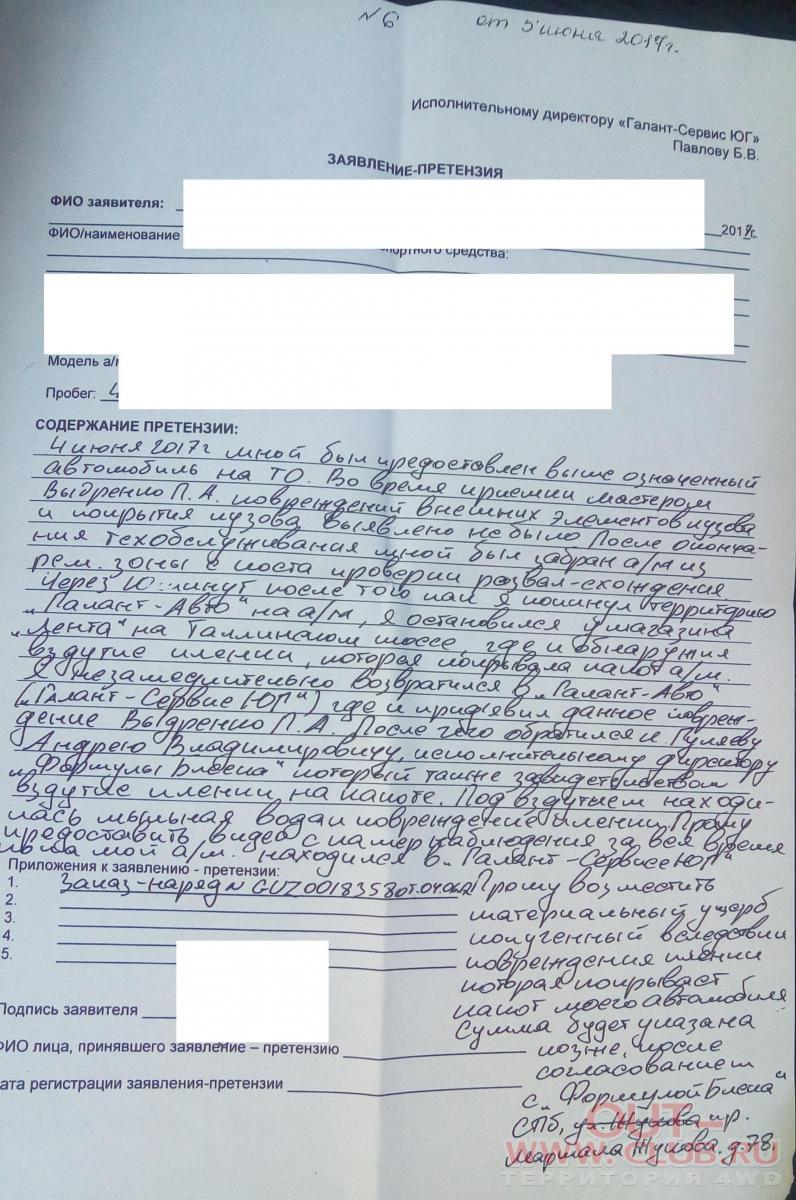 N 6 от 5 июня 2017г.
Исполнительному директору «Галант-Сервис ЮГ»
Павлову Б.В.
ЗАЯВЛЕНИЕ-ПРЕТЕНЗИЯ
ФИО заявителя:
2017г.
ФИО/наименование
портного средства:
Модель а/м
Пробег: 4
СОДЕРЖАНИЕ ПРЕТЕНЗИИ:
4 июня 2017г мной был предоставлен выше означенный
автомобиль на ТО. Во время приемки мастером
Выдренко П.А. повреждений внешних элементов кузова
и покрытия кузова выявлено не было После оконча-
ния техобслуживания мной был забран а/м из
рем. зоны с поста проверки развал-схождения
Через 10 минут после того как я покинул территорию
„Галант-Авто" на а/м, я остановился у магазина
„Лента" на Таллинском шоссе, где и обнаружил
вздутие пленки, которая покрывала капот а/м.
Я незамедлительно возвратился в „Галант-Авто"
(„Галант-Сервис ЮГ") где и предъявил данное повреж-
дение Выдренко П.А. После чего обратился к Гуляеву
Андрею Владимировичу, исполнительному директору
„Формулы Блеска" который также засвидетельствовал
вздутие пленки на капоте. Под вздутием находи-
лась мыльная вода и повреждение пленки Прошу
предоставить видео с камер наблюдения за все время
мой а/м. находился в „Галант-Сервисе ЮГ"
Приложения к заявлению - претензии:
1. Заказ-наряд N GUZ0018358 от.04.06.17 Прошу возместить
2. материальный ущерб
3. полученный вследствии
4. повреждения пленки
5. которая покрывает
капот моего автомобиля
Подпись заявителя
Сумма будет указана
ФИО лица, принявшего заявление – претензию
позже, после
согласованием
ата регистрации заявления-претензии
с „Формулой Блеска"
СПб, ул. Жукова пр.
Маршала Жукова. д.78.
OUT-
WWW.CLUB.RU
ТЕРРИТОРИЯ 4WD